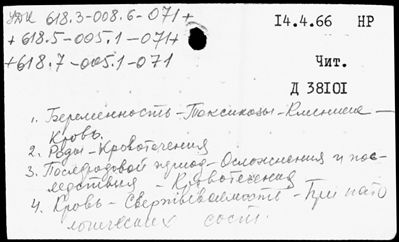 УДК 618.3-008.6-071+
+618.5-005.1-071+
+618.7-005.1-071
14.4.66 НР
Чит.
Д 38101
1. Беременность - Токсикозы - Клиника -
Кровь.
2. Роды - Кровотечения
3. Послеродовой период - Осложнения и пос-
ледствия - Кровотечения
4. Кровь - Свертываемость - При пато
логических сост.